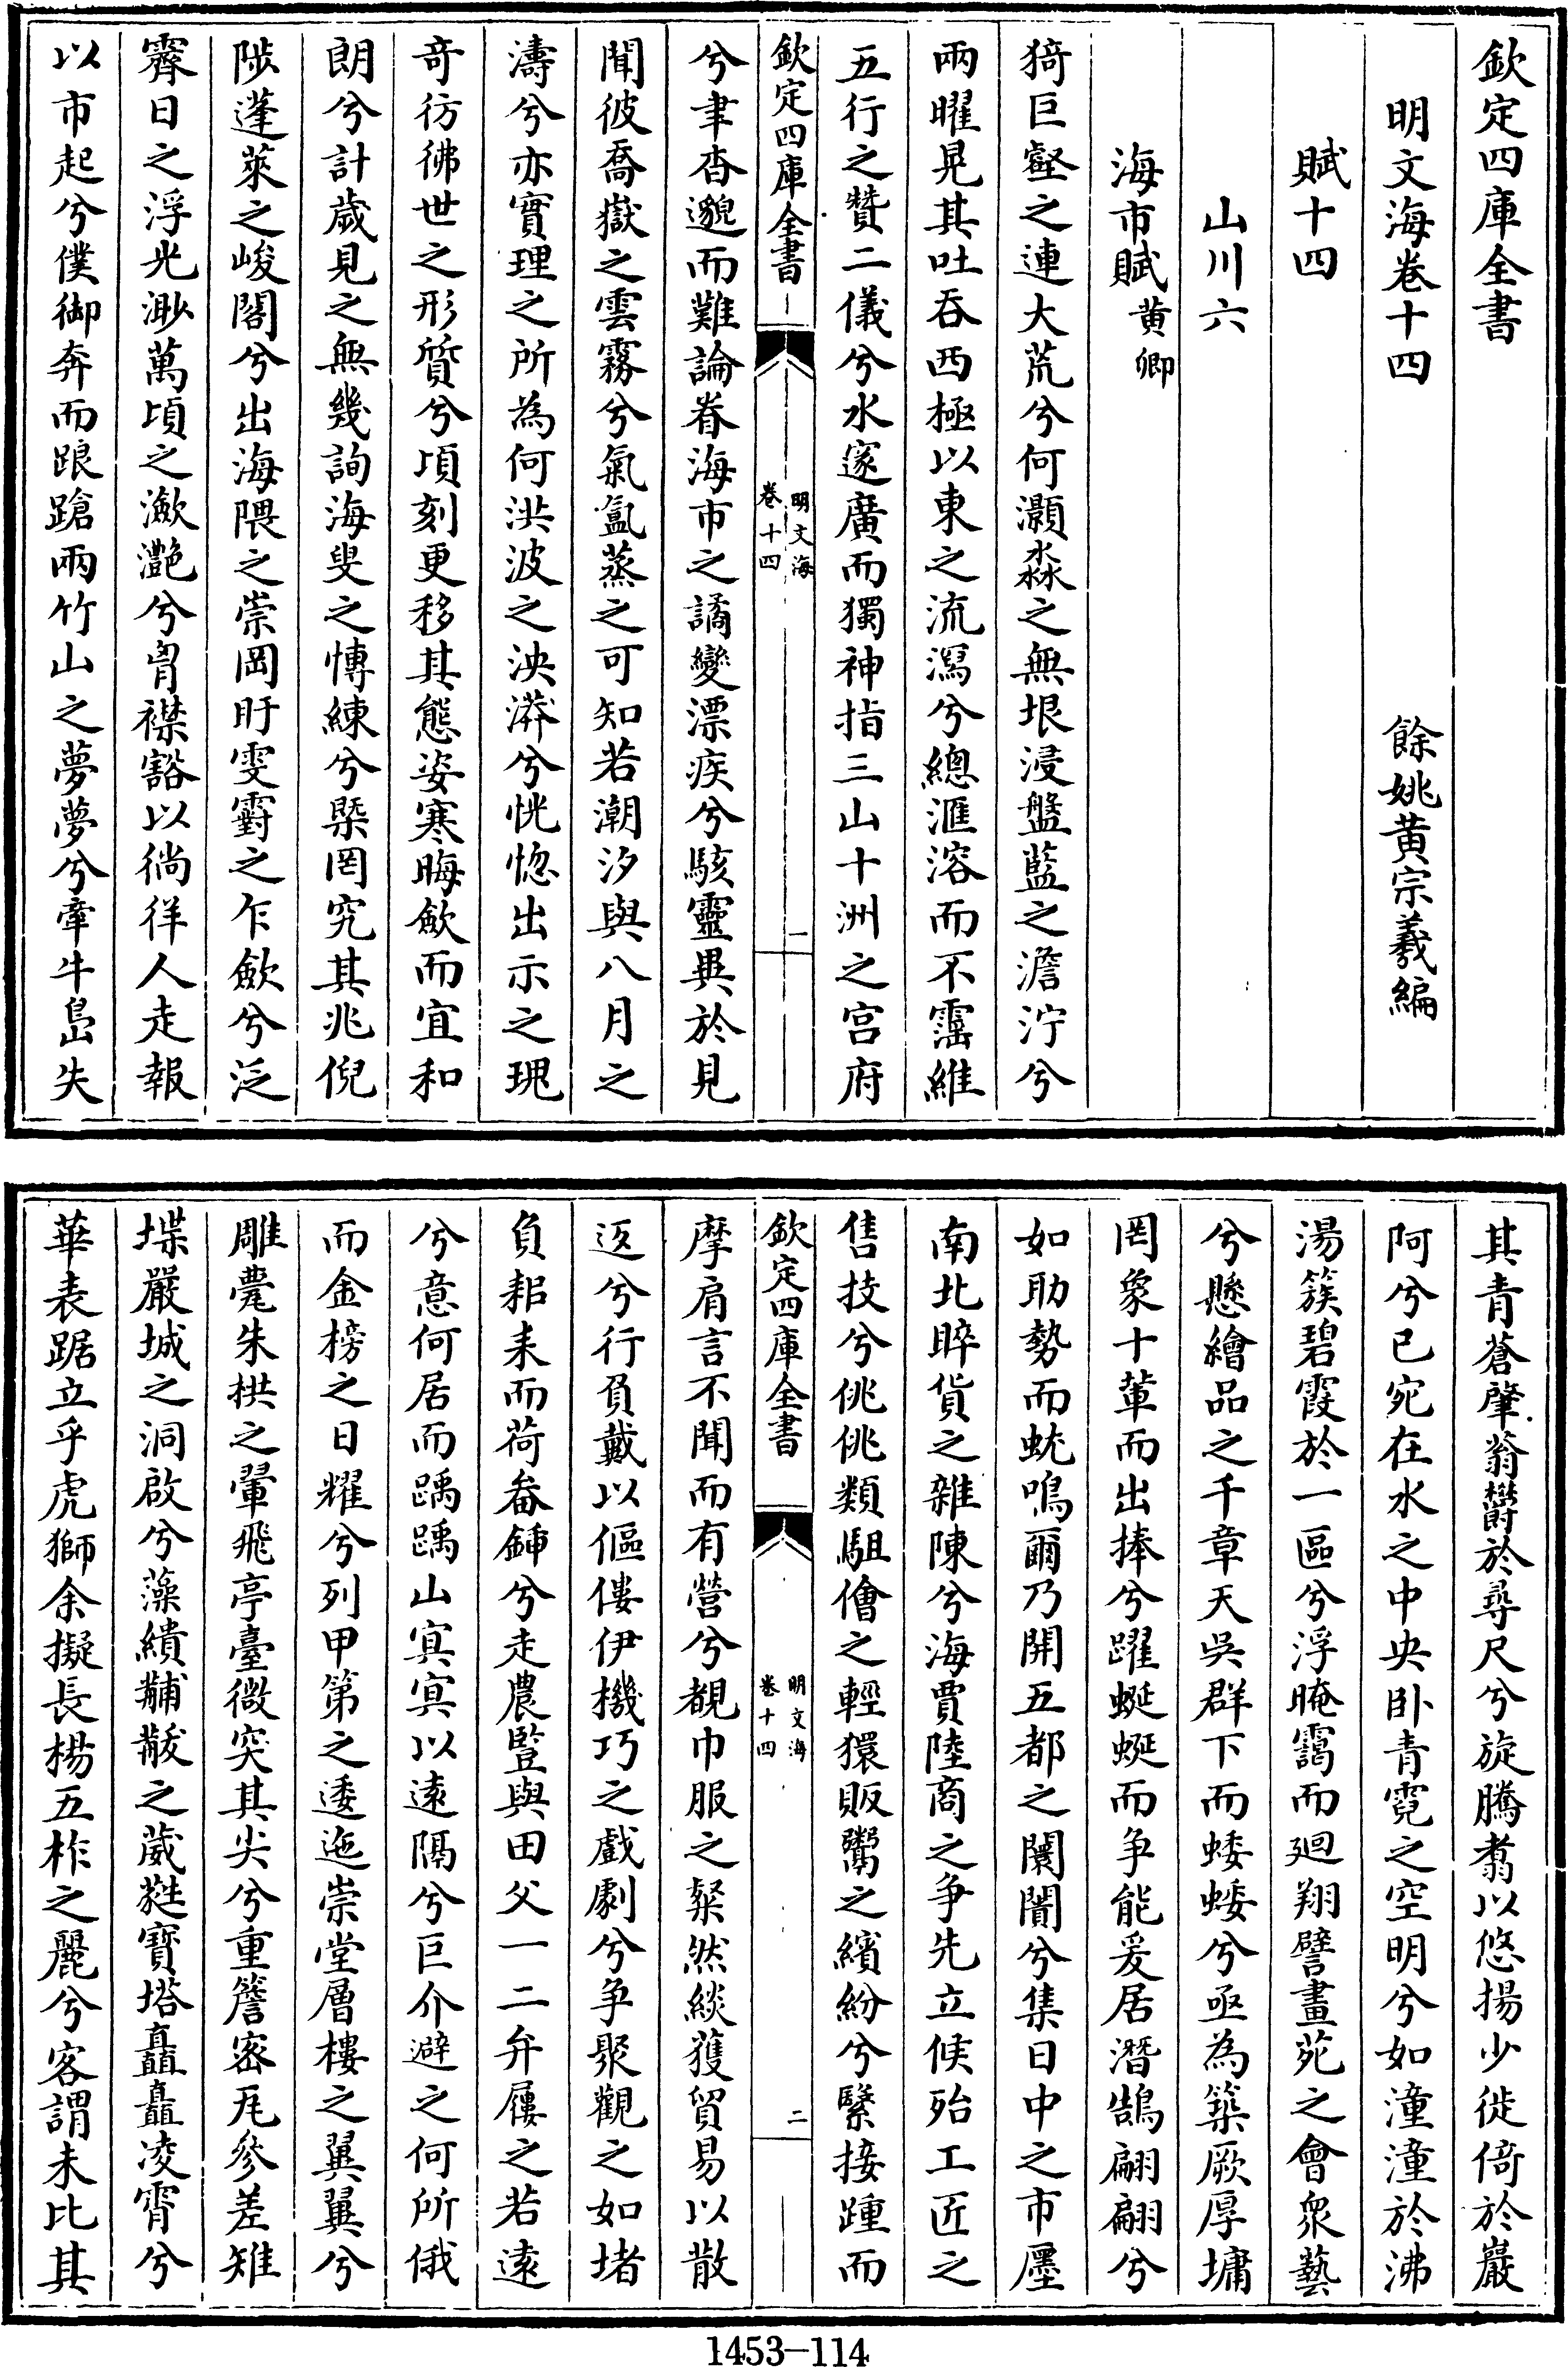 欽定四庫全書
明文海卷十四
餘姚黃宗羲編
賦十四
山川六
海市賦黃卿
猗巨壑之連大荒兮何灝淼之無垠浸盤藍之澹泞兮
兩曜晃其吐吞西極以東之流瀉兮總滙溶而不霤維
五行之贊二儀兮水邃廣而獨神指三山十洲之宮府
欽定四庫全書
明文海
卷十四
一
兮聿杳邈而難論眷海市之譎變漂疾兮駭靈異於見
聞彼喬嶽之雲霧兮氣氳蒸之可知若潮汐與八月之
濤兮亦實理之所為何洪波之泱漭兮恍惚出示之瑰
奇彷彿世之形質兮頃刻更移其態姿寒晦歛而宜和
朗兮計歲見之無幾詢海叟之慱練兮槩罔究其兆倪
陟蓬萊之峻閣兮出海隈之崇岡盱雯霨之乍歛兮泛
霽日之浮光渺萬頃之瀲灧兮胷襟豁以徜徉人走報
以市起兮僕御奔而踉蹌兩竹山之夢夢兮牽牛島失
其青蒼肇蓊欝於尋尺兮旋騰翥以悠揚少徙倚於巖
阿兮已宛在水之中央卧青霓之空明兮如潼潼於沸
湯簇碧霞於一區兮浮晻靄而廻翔譬畫苑之會衆藝
兮懸繪品之千章天吳群下而蜲蜲兮亟為築厥厚墉
罔象十軰而出捧兮躍蜒蜒而爭能爰居潛鵠翩翩兮
如助勢而蚢鳴爾乃開五都之闤闠兮集日中之市廛
南北晬貨之雜陳兮海賈陸商之爭先立候殆工匠之
售技兮佻佻類駔儈之輕獧販鬻之繽紛兮繄接踵而
欽定四庫全書
明文海
卷十四
二
摩肩言不聞而有營兮覩巾服之粲然緂獲貿易以散
返兮行負戴以傴僂伊機巧之戲劇兮爭聚觀之如堵
負耜耒而荷畚鍤兮走農豎與田父一二弁屨之若遠
兮意何居而踽踽山寘寘以遠隔兮巨介避之何所俄
而金榜之日耀兮列甲第之逶迤崇堂層樓之翼翼兮
雕甍朱拱之翬飛亭臺微突其尖兮重簷密毛參差雉
堞嚴城之洞啟兮藻繢黼黻之葳蕤寶塔矗矗凌霄兮
華表踞立乎虎獅余擬長楊五柞之麗兮客謂未比其
1453-114